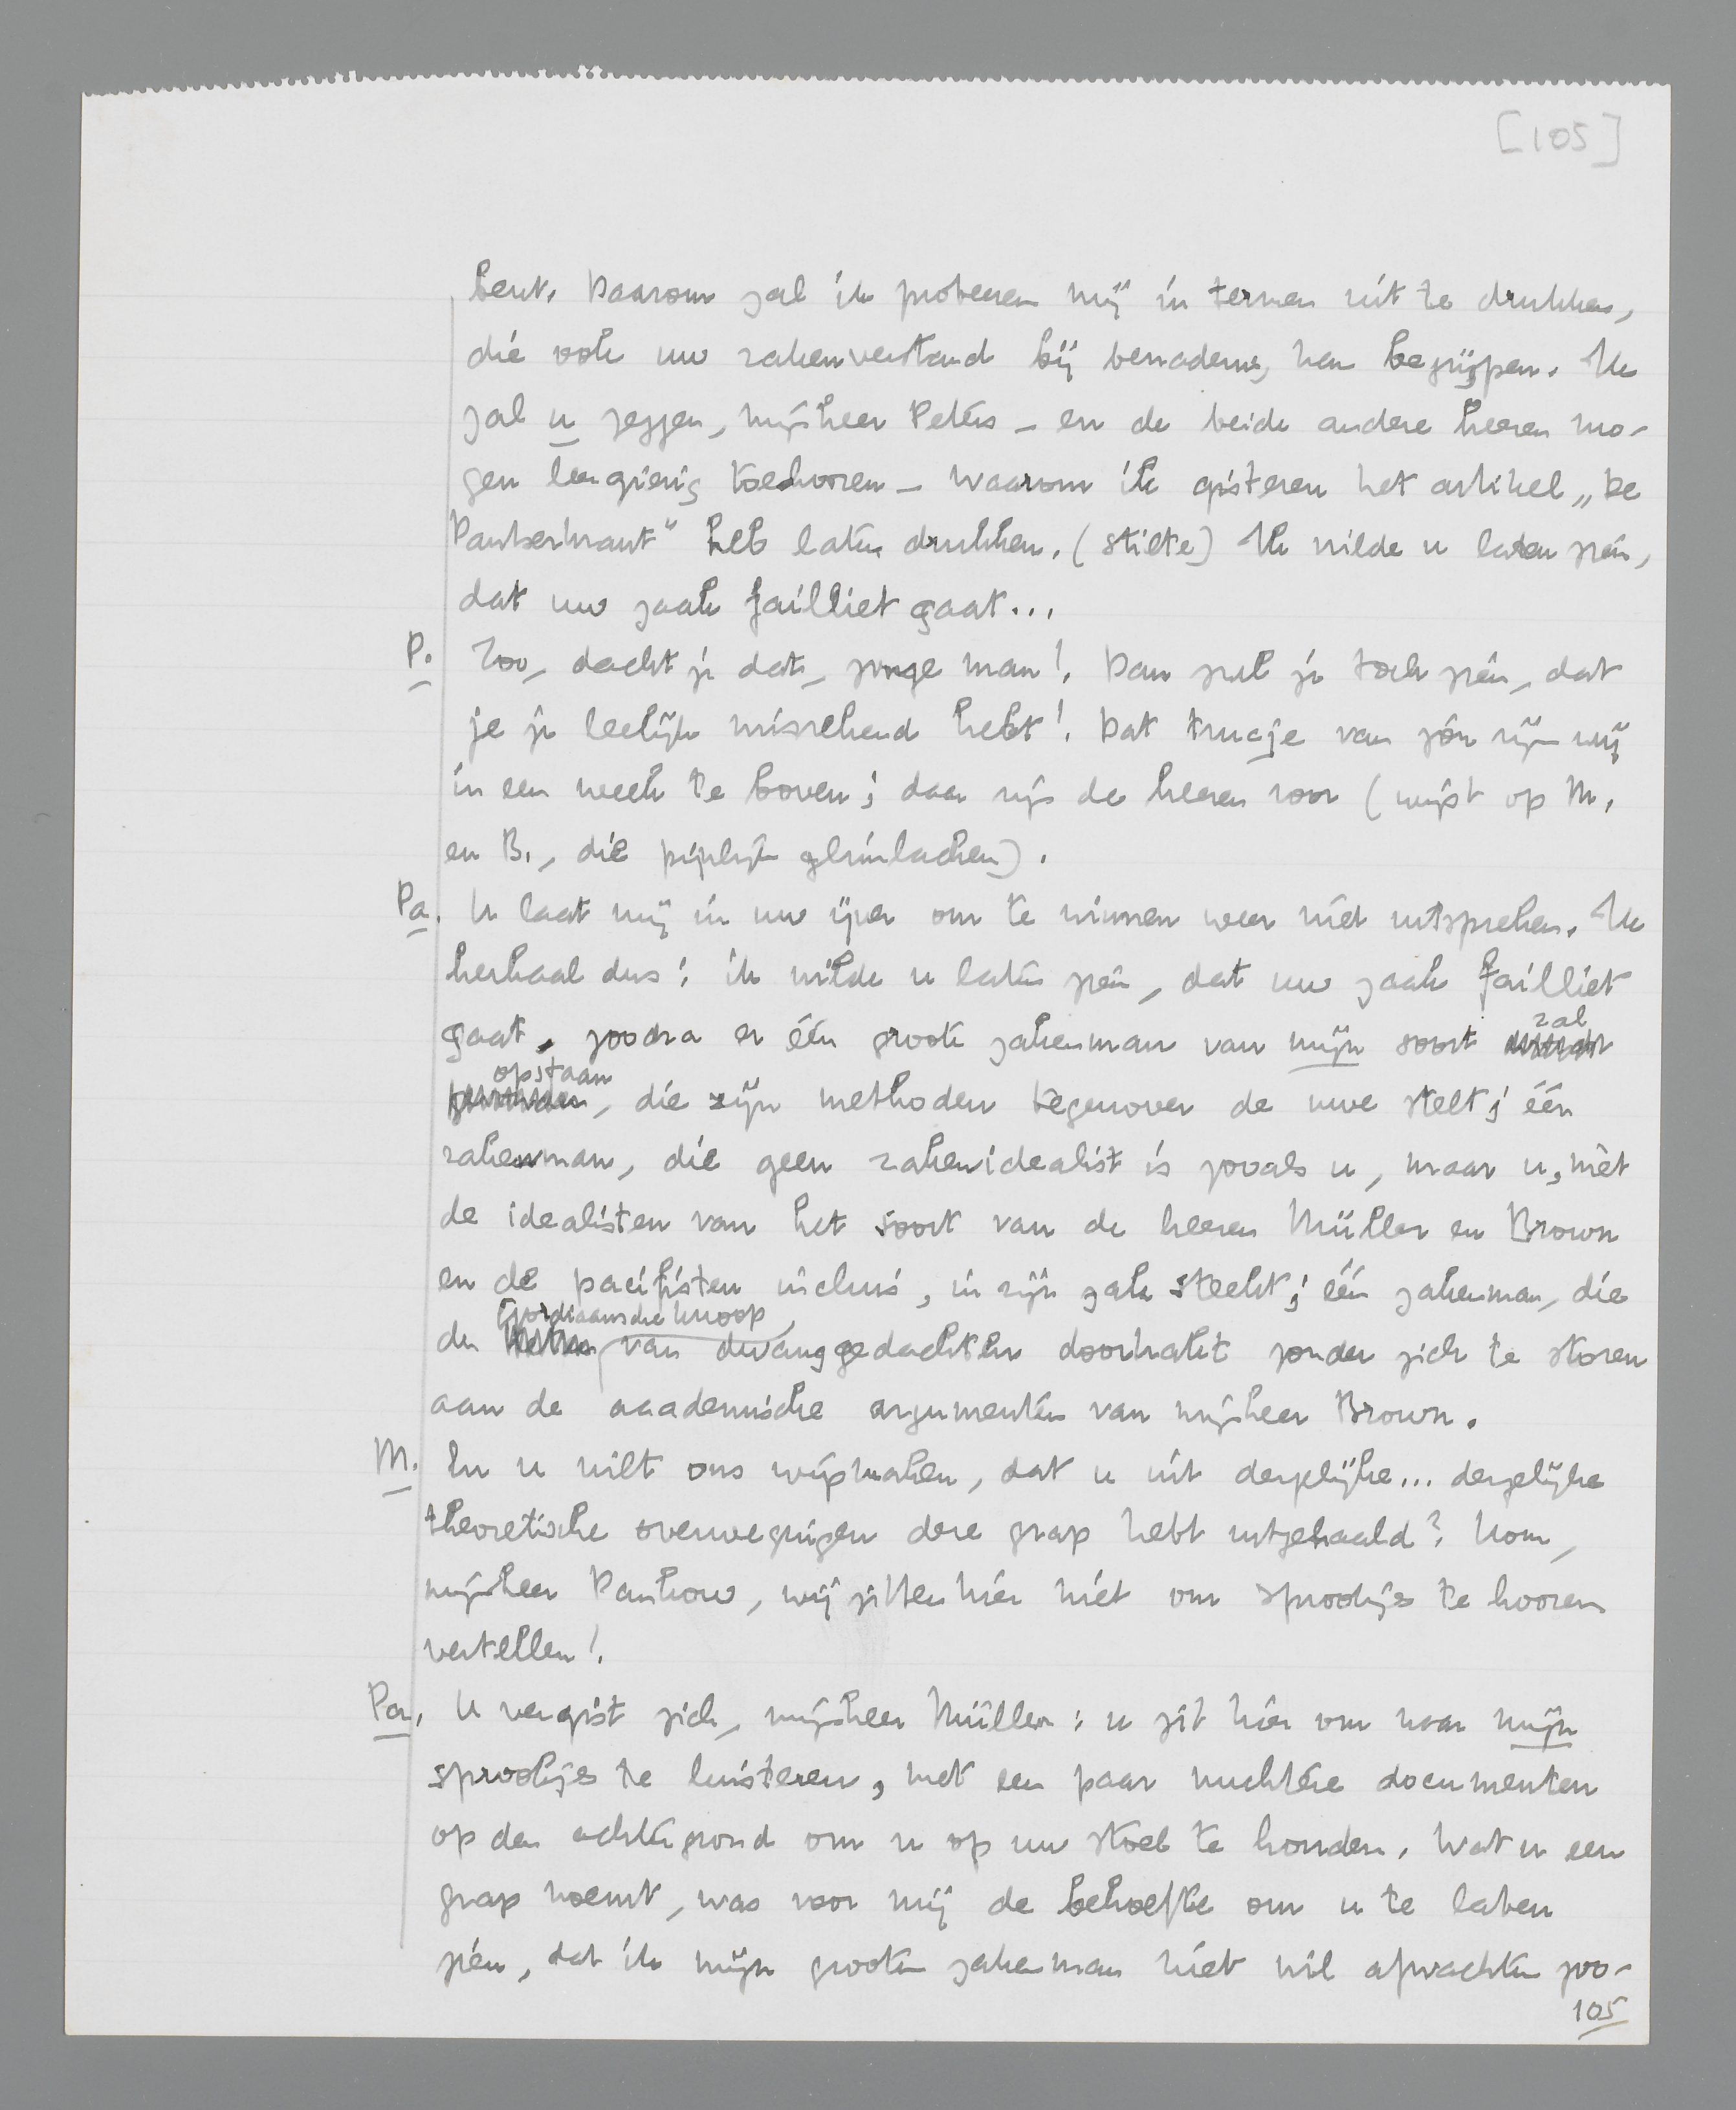 [105]
bent. Daarom zal ik probeeren mij in termen uit te drukken,
die ook uw zakenverstand bij benadering kan begrijpen. Ik
zal u zeggen, mijnheer Peters – en de beide andere heeren mo-
gen leergierig toehooren – waarom ik gisteren het artikel „De
Pantserkrant" heb laten drukken. (stilte) Ik wilde u laten zien,
dat uw zaak failliet gaat...
P. Zoo, dacht je dat, jonge man! Dan zul je toch zien, dat
je je leelijk misrekend hebt! Dat trucje van jou zijn wij
in een week te boven; daar zijn de heeren voor (wijst op M.
en B., die pijnlijk glimlachen).
Pa. U laat mij in uw ijver om te winnen weer niet uitspreken. Ik
herhaal dus: ik wilde u laten zien, dat uw zaak failliet
gaat, zoodra er één groote zakenman van mijn soort zal
opstaan, die zijn methoden tegenover de uwe stelt; één
zakenman, die geen zakenidealist is zooals u, maar u, mèt
de idealisten van het soort van de heeren Müller en Brown
en de pacifisten incluis, in zijn zak steekt; één zakenman, die
den Gordiaansche knoop van dwanggedachten doorhakt zonder zich te storen
aan de academische argumenten van mijnheer Brown.
M. En u wilt ons wijsmaken, dat u uit dergelijke... dergelijke
theoretische overwegingen deze grap hebt uitgehaald? Kom,
mijnheer Pantrow, wij zitten hier niet om sprookjes te hooren
vertellen!
Pa. U vergist zich, mijnheer Müller: u zit hier om naar mijn
sprookjes te luisteren, met een paar nuchtere documenten
op den achtergrond om u op uw stoel te houden. Wat u een
grap noemt, was voor mij de behoefte om u te laten
zien, dat ik mijn grooten zakenman niet wil afwachten zoo-
105